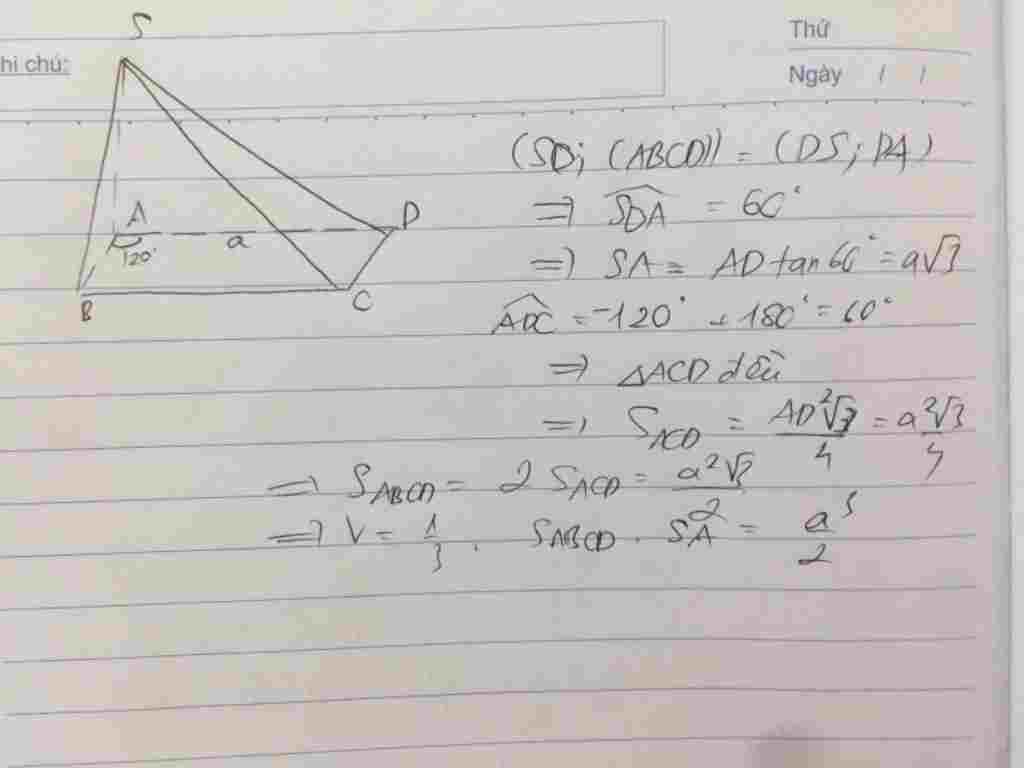 hi chú:
Thứ
Ngày / /
S
A
120°
a
D
B
C
(SD; (ABCD)) = (DS; DA)
=> SDA = 60°
=> SA = AD tan 60° = a√3
ADC = -120° + 180° = 60°
=> △ACD đều
=> S_ACD = AD²√3/4 = a²√3/4
=> S_ABCD = 2 S_ACD = a²√3/2
=> V = 1/3 . S_ABCD . SA = a³/2